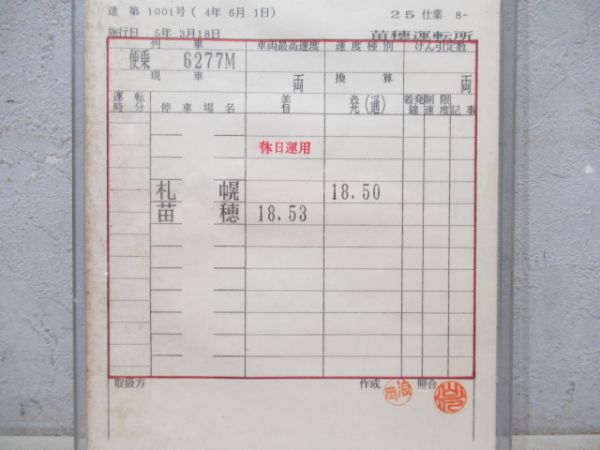 達 第 1001号 ( 4年 6月 1日) 25 仕業 8-
施行日 5年 3月18日 苗穂運転所
列 車 車両最高速度 速 度 種 別 けん引定数
便乗 6277M
現 車 両 換 算 両
運 転 時 分 停 車 場 名 着 発(通) 着発線 制限速度 記 事
休日運用
札 幌 18.50
苗 穂 18.53
取扱方 作成 照合